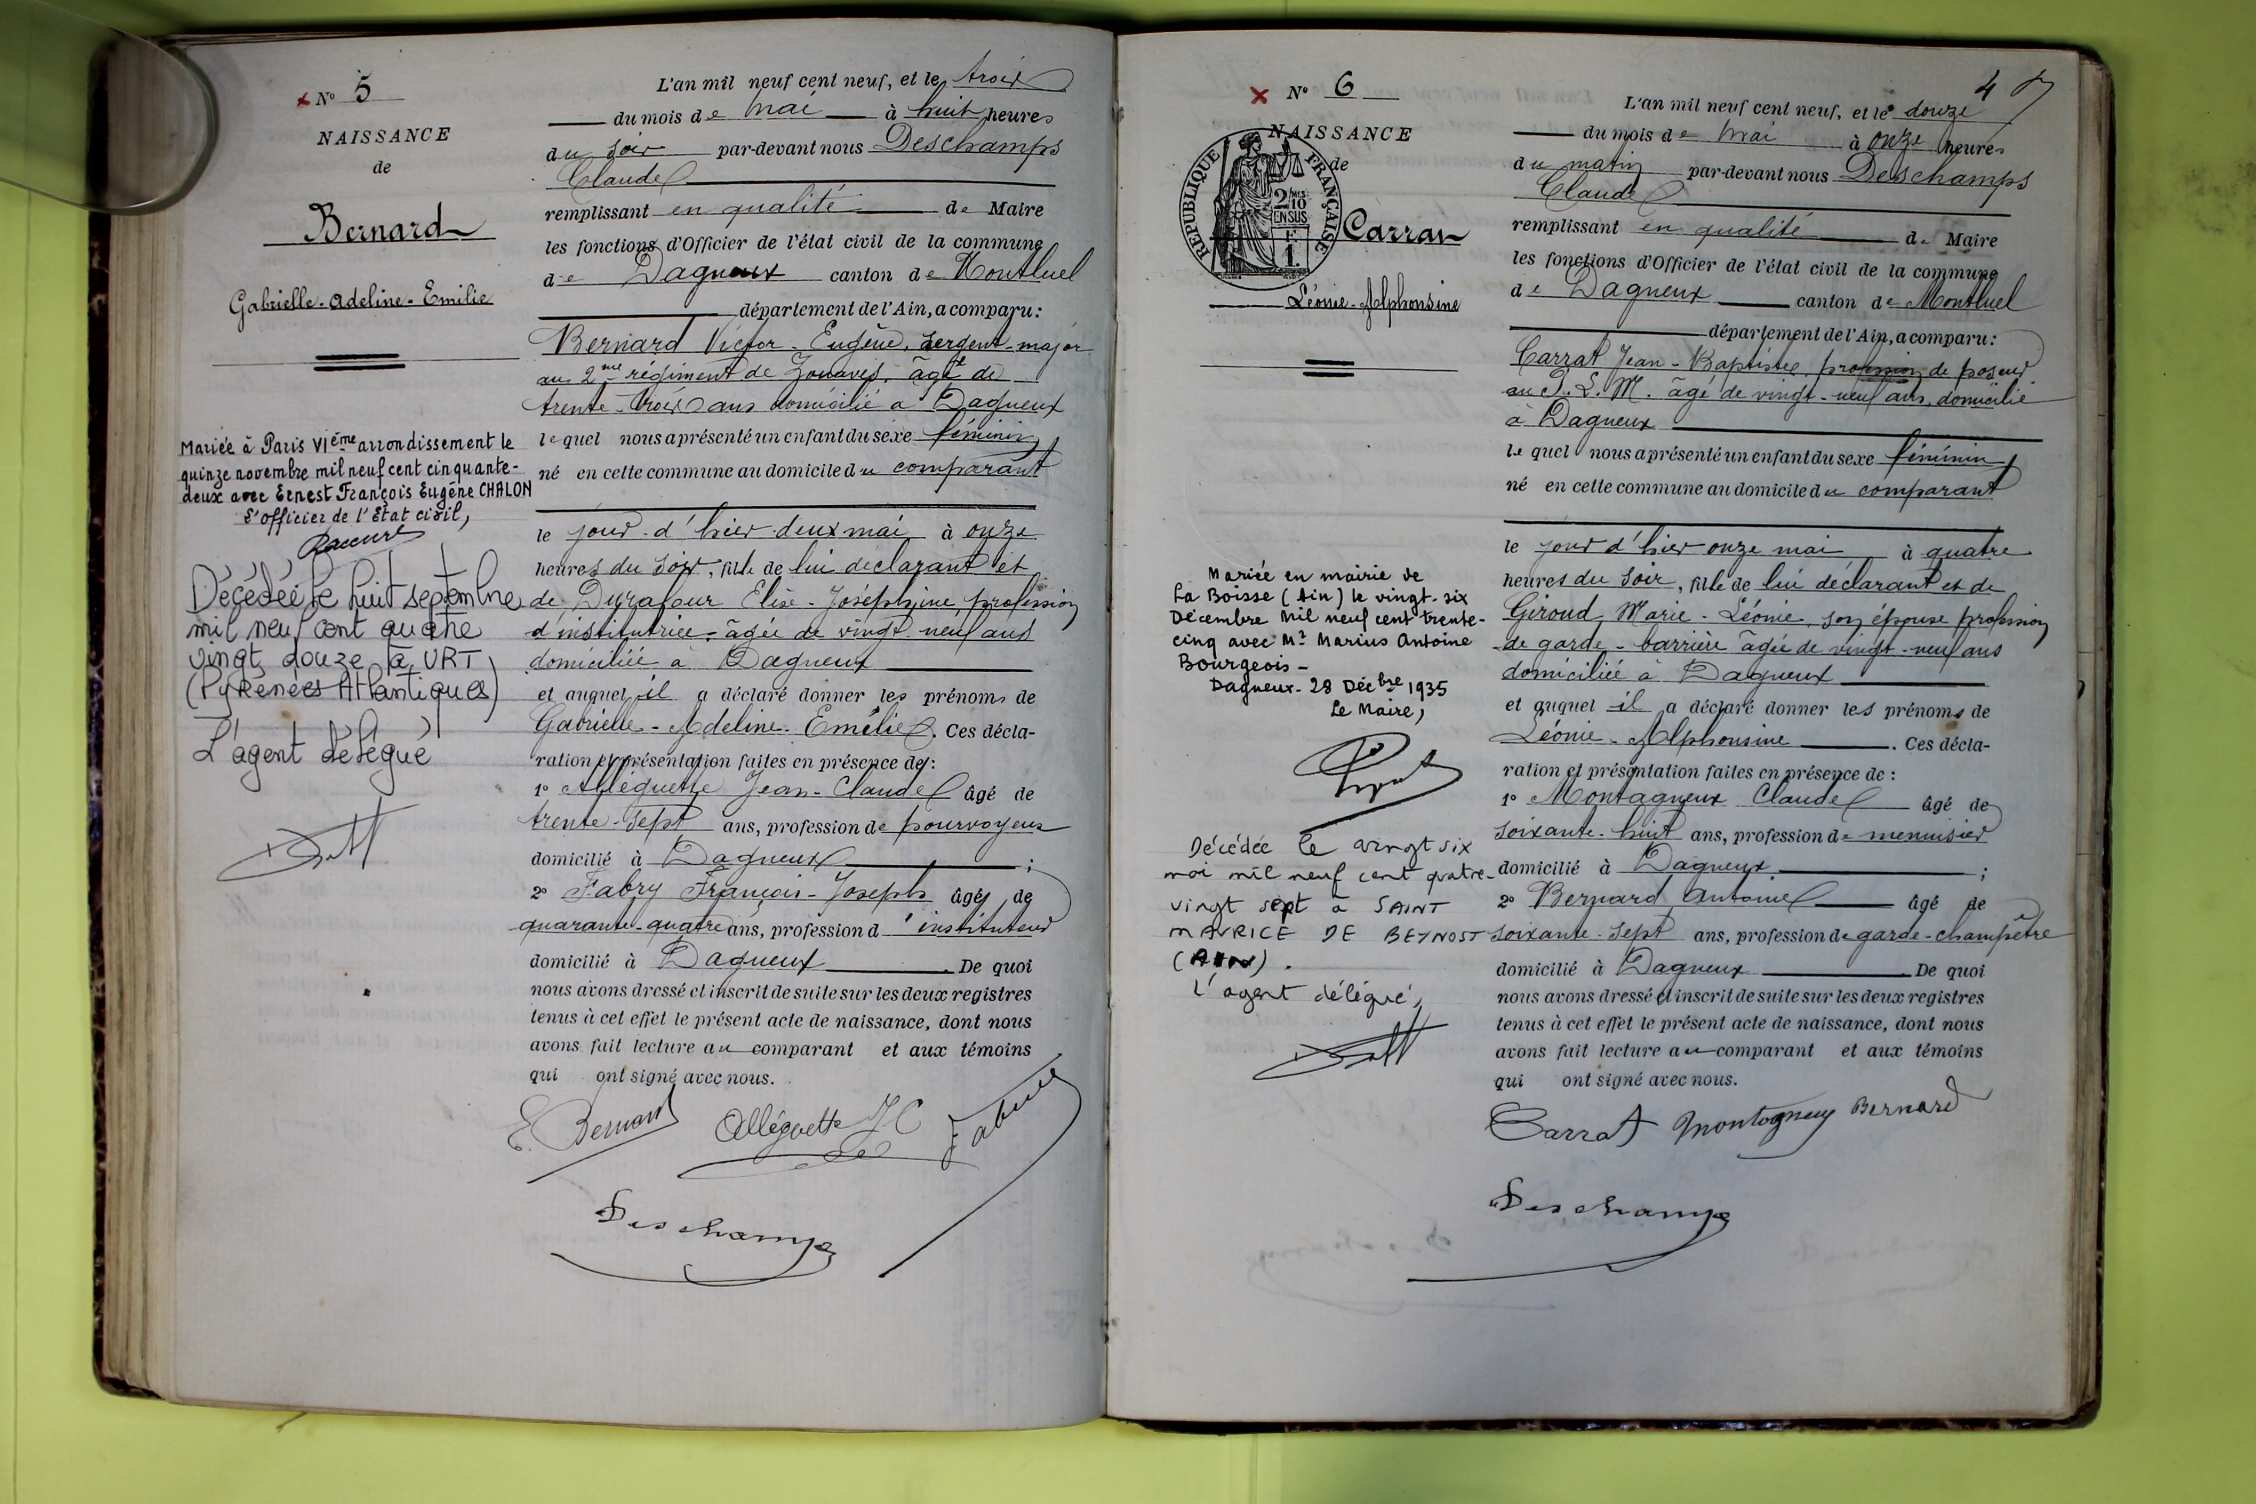 N° 5
NAISSANCE
de
Bernard
Gabrielle-Adeline-Emilie
Mariée à Paris VIème arrondissement le
quinze novembre mil neuf cent cinquante-
deux avec Ernest François Eugène CHALON
L'officier de l'Etat civil,
Décédée le huit septembre
mil neuf cent quatre
vingt douze à URT
(Pyrénées Atlantiques)
L'agent délégué
L'an mil neuf cent neuf, et le trois
du mois de mai à huit heures
du soir par-devant nous Deschamps
Claude
remplissant en qualité de Maire
les fonctions d'Officier de l'état civil de la commune
de Dagneux canton de Montluel
département de l'Ain, a comparu:
Bernard Victor-Eugène, sergent-major
au 2me régiment de Zouaves, âgé de
trente-trois ans domicilié à Dagneux
lequel nous a présenté un enfant du sexe féminin
né en cette commune au domicile du comparant
le jour d'hier deux mai à onze
heures du soir, fille de lui déclarant et
de Durafour Elise-Joséphine, profession
d'institutrice-âgée de vingt neuf ans
domiciliée à Dagneux
et auquel il a déclaré donner les prénoms de
Gabrielle-Adeline-Emélie. Ces décla-
ration et présentation faites en présence de:
1° Alléguette Jean-Claude âgé de
trente-sept ans, profession de pourvoyeur
domicilié à Dagneux ;
2° Fabry François-Joseph âgé de
quarante-quatre ans, profession d'instituteur
domicilié à Dagneux. De quoi
nous avons dressé et inscrit de suite sur les deux registres
tenus à cet effet le présent acte de naissance, dont nous
avons fait lecture au comparant et aux témoins
qui ont signé avec nous.
E. Bernard Alléguette JC
Deschamps
N° 6
NAISSANCE
de
REPUBLIQUE FRANÇAISE
2/10
EN SUS
F.
1.
Carrat
Léonie-Alphonsine
Mariée en mairie de
La Boisse (Ain) le vingt-six
Décembre mil neuf cent trente-
cinq avec Mr Marius Antoine
Bourgeois-
Dagneux-28 Décbre 1935
Le Maire,
Décédée le vingt six
mai mil neuf cent quatre-
vingt sept à SAINT
MAURICE DE BEYNOST
(AIN).
L'agent délégué,
4
L'an mil neuf cent neuf, et le douze
du mois de mai à onze heures
du matin par-devant nous Deschamps
Claude
remplissant en qualité de Maire
les fonctions d'Officier de l'état civil de la commune
de Dagneux canton de Montluel
département de l'Ain, a comparu:
Carrat Jean-Baptiste, profession de poseur
au P.L.M. âgé de vingt-neuf ans, domicilié
à Dagneux
lequel nous a présenté un enfant du sexe féminin
né en cette commune au domicile du comparant
le jour d'hier onze mai à quatre
heures du soir, fille de lui déclarant et de
Giroud Marie-Léonie, son épouse profession
de garde-barrière âgée de vingt-neuf ans
domiciliée à Dagneux
et auquel il a déclaré donner les prénoms de
Léonie-Alphonsine. Ces décla-
ration et présentation faites en présence de:
1° Montagneux Claude âgé de
soixante-huit ans, profession de menuisier
domicilié à Dagneux ;
2° Bernard Antoine âgé de
soixante-sept ans, profession de garde-champêtre
domicilié à Dagneux. De quoi
nous avons dressé et inscrit de suite sur les deux registres
tenus à cet effet le présent acte de naissance, dont nous
avons fait lecture au comparant et aux témoins
qui ont signé avec nous.
Carrat Montagneux Bernard
Deschamps